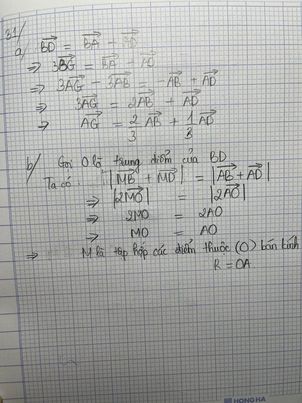 31/
a/ BD = BA - BD
=> 3BG = BA - AD
=> 3AG - 3AB = -AB + AD
=> 3AG = 2AB + AD
=> AG = 2/3 AB + 1/3 AD
b/ Gọi O là trung điểm của BD
Ta có: |MB + MD| = |AB + AD|
=> |2MO| = |2AO|
=> 2MO = 2AO
=> MO = AO
=> M là tập hợp các điểm thuộc (O) bán kính
R = OA.
HONG HA